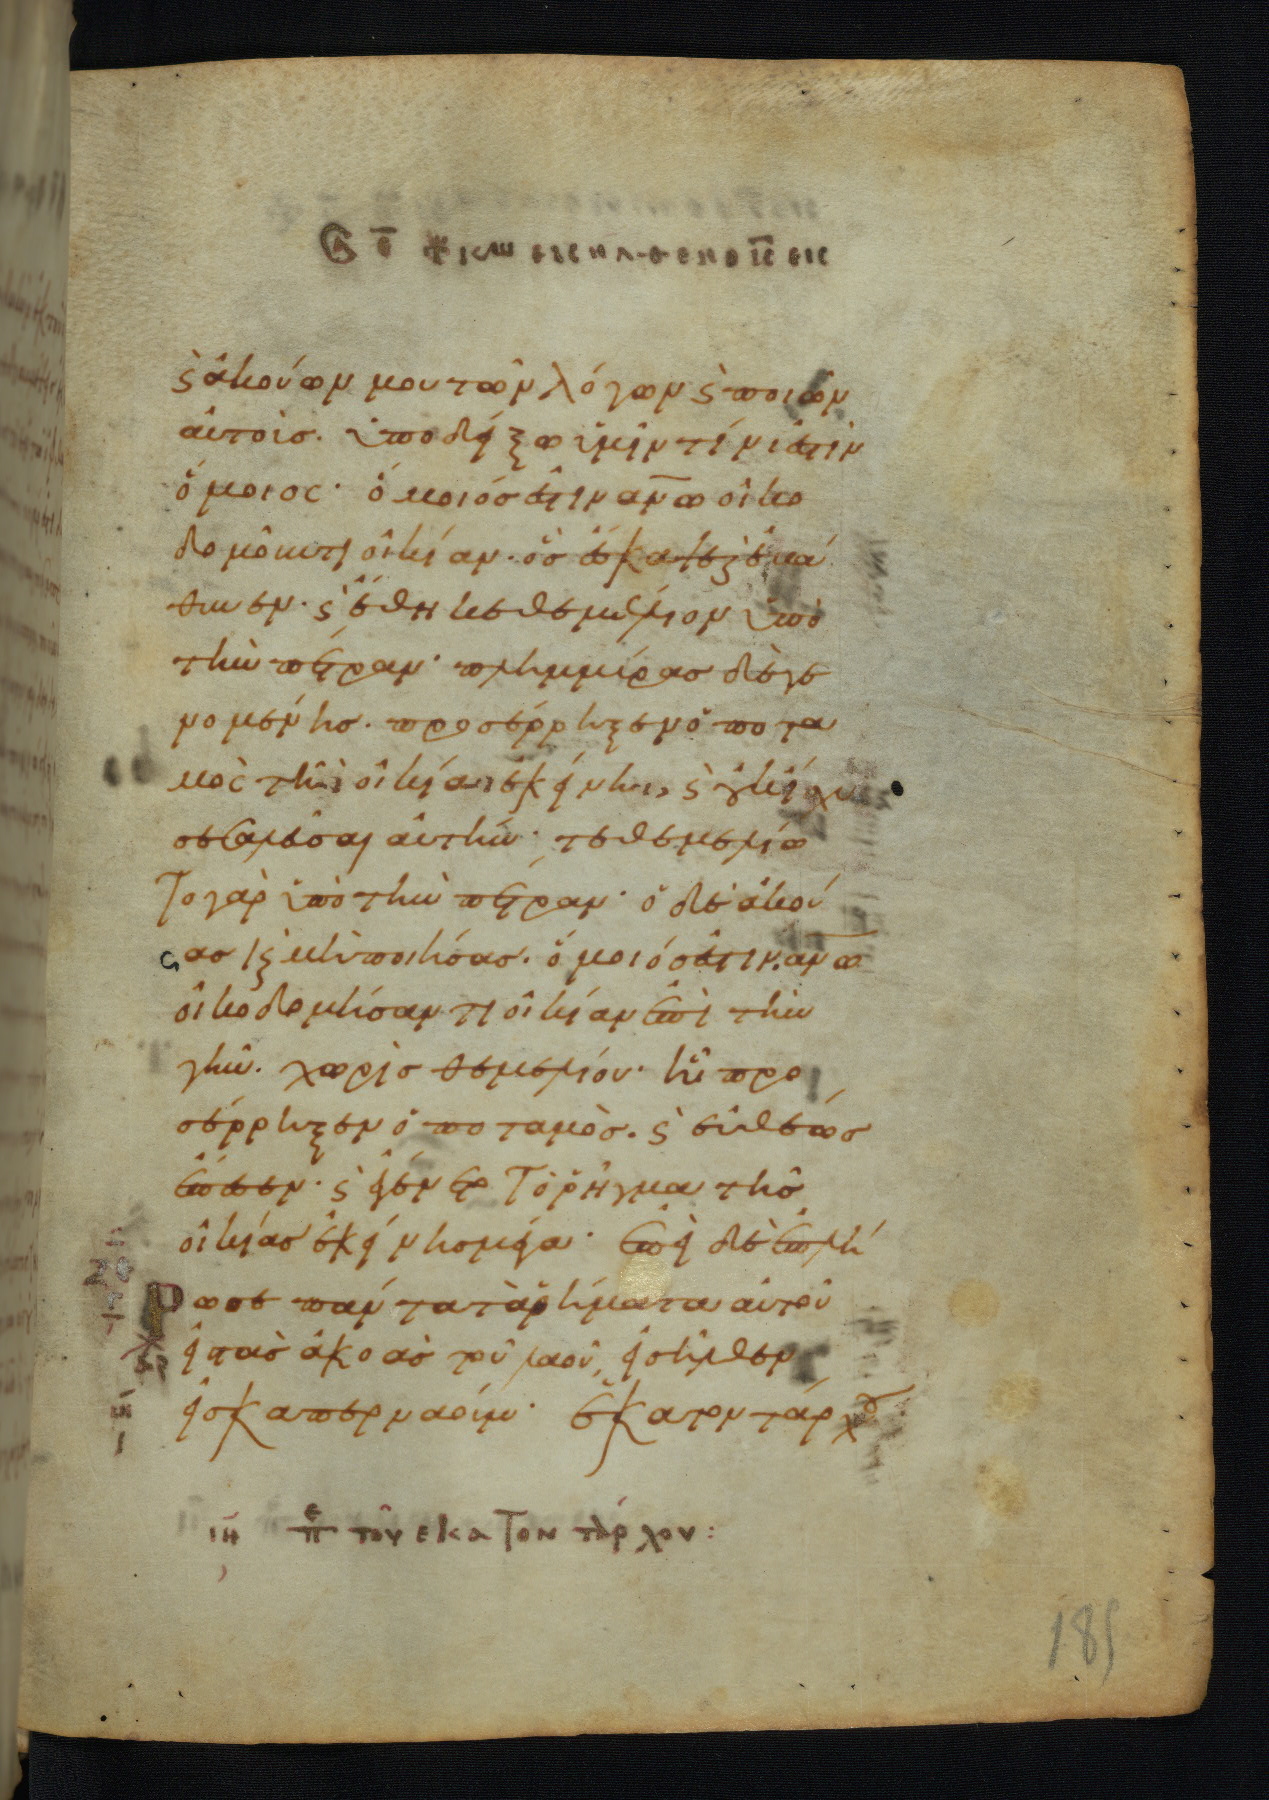 τῶ κ̅ω̅ εἰσῆλθεν ὁ ι̅ς̅ εἰς
ϛ ἀκούων μου τῶν λόγων ϛ ποιῶν
αὐτοὺσ· ὑποδείξω ὑμῖν τίνι ἐστὶν
ὅμοιος· ὅμοιός ἐστιν α̅ν̅ω̅ οἰκο
δομοῦντι οἰκίαν· ὃσ ἔσκαψε ϛ ἐβά
θυνεν· ϛ ἔθηκε θεμέλιον ἐπὶ
τὴν πέτραν· πλημμύρασ δὲ γε
νομένησ· προσέρρηξεν ὁ ποτα
μὸς τῆ οἰκία ἐκείνη, ϛ οὐκ ἴσχυ
σε σαλεῦσαι αὐτήν· τεθεμελίω
το γὰρ ἐπὶ τὴν πέτραν· ὁ δὲ ἀκού
σασ ϛ μὴ ποιήσασ· ὅμοιόσ ἐστιν α̅ν̅ω̅
οἰκοδομήσαντι οἰκίαν ἐπὶ τὴν
γῆν· χωρὶσ θεμελίου· ἧ προ
σέρρηξεν ὁ ποταμὸσ· ϛ εὐθέωσ
ἔπεσεν· ϛ ἐγένετο τὸ ῥῆγμα τῆσ
οἰκίασ ἐκείνησ μέγα· ἐπεὶ δὲ ἐπλή
ρωσε πάντα τὰ ῥήματα αὐτοῦ
εἰς τὰσ ἀκοὰσ τοῦ λαοῦ, εἰσῆλθεν
εἰσ καπερναούμ· ἑκατοντάρχου
ιη π̅ε̅ τοῦ ἑκατοντάρχου:
185